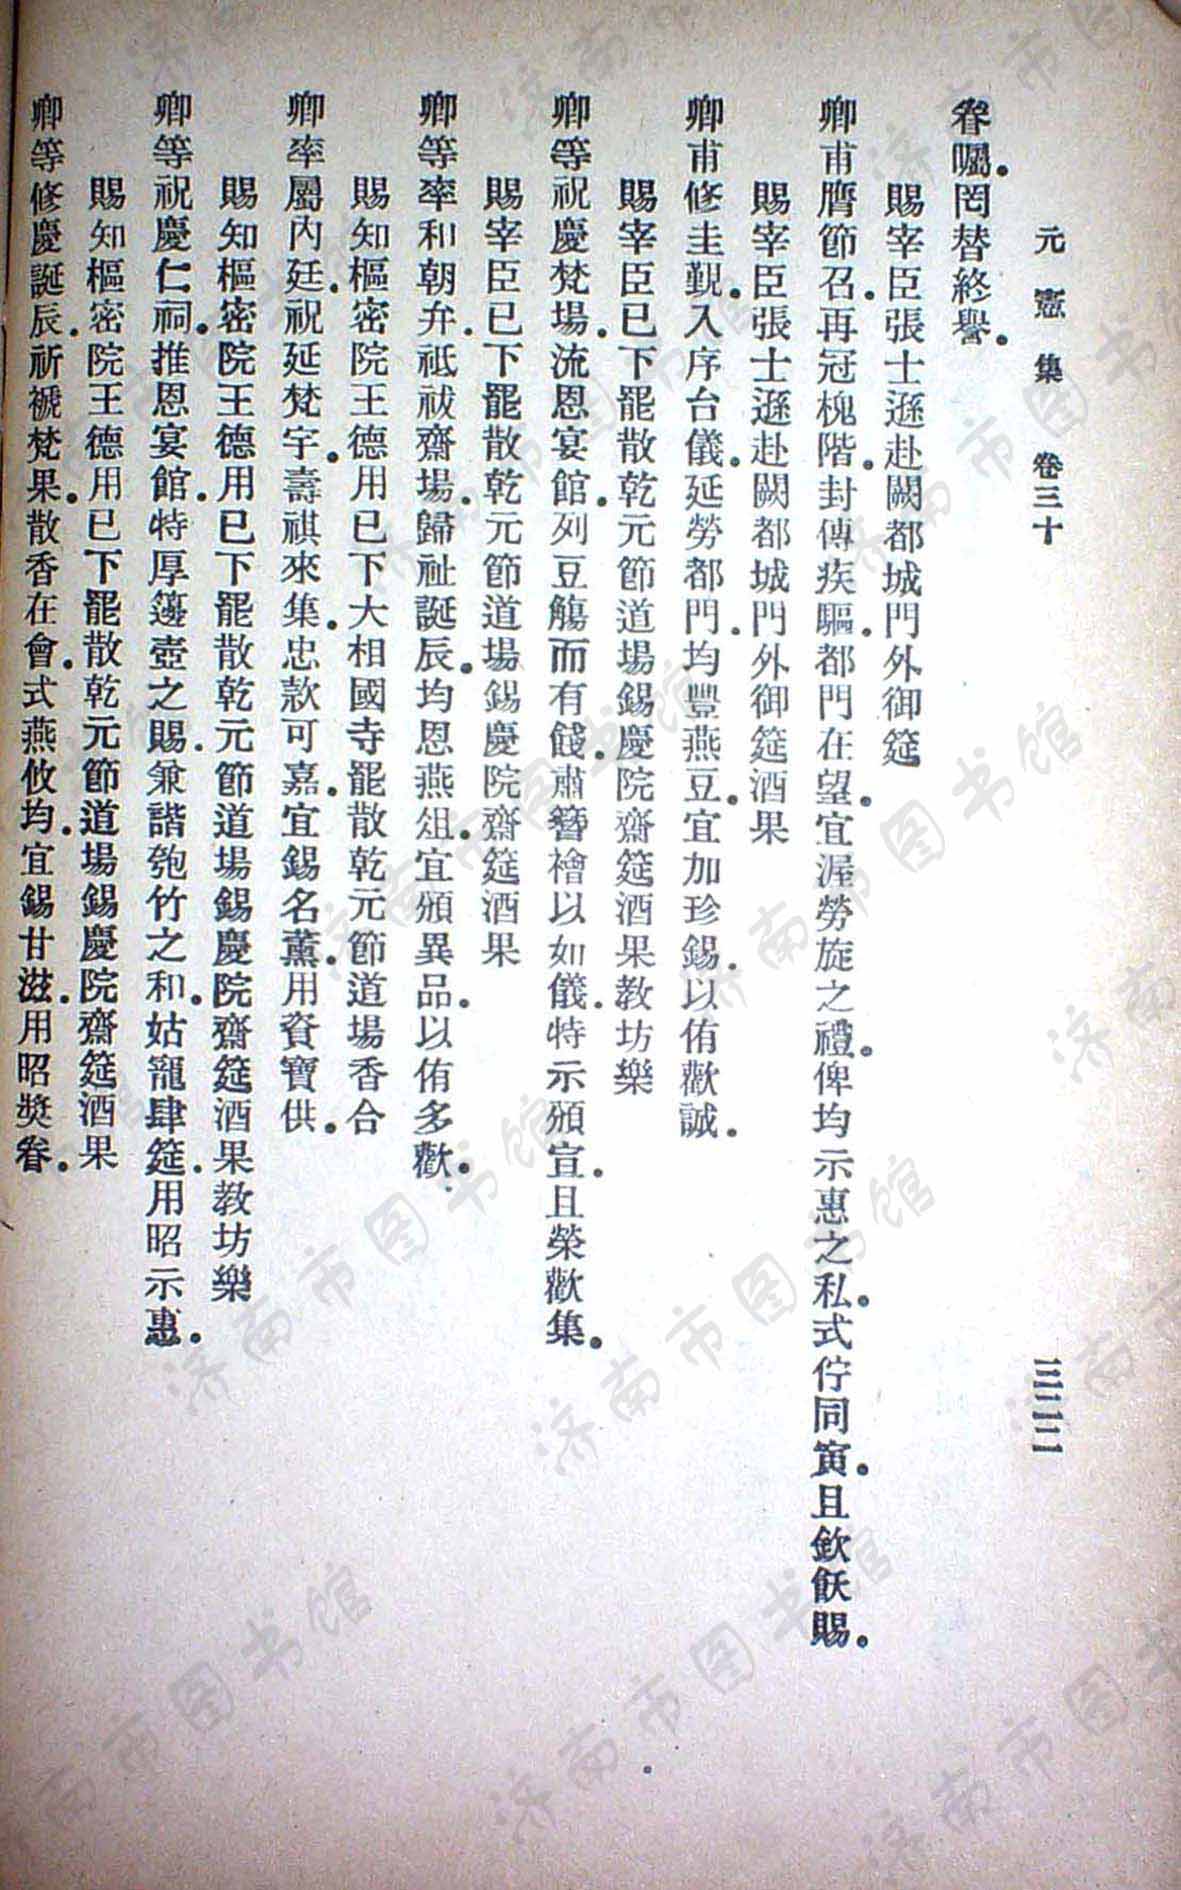 元憲集 卷三十 三二二
眷囑。罔替終譽。
賜宰臣張士遜赴闕都城門外御筵
卿甫膺節召。再冠槐階。封傳疾驅。都門在望。宜渥勞旋之禮。俾均示惠之私。式佇同寅。且欽飫賜。
賜宰臣張士遜赴闕都城門外御筵酒果
卿甫修圭覲。入序台儀。延勞都門。均豐燕豆。宜加珍錫。以侑歡誠。
賜宰臣已下罷散乾元節道場錫慶院齋筵酒果教坊樂
卿等祝慶梵場。流恩宴館。列豆觴而有餞。肅簪襘以如儀。特示頒宣。且榮歡集。
賜宰臣已下罷散乾元節道場錫慶院齋筵酒果
卿等率和朝弁。祗祓齋場。歸祉誕辰。均恩燕俎。宜頒異品。以侑多歡。
賜知樞密院王德用已下大相國寺罷散乾元節道場香合
卿率屬內廷。祝延梵宇。壽祺來集。忠款可嘉。宜錫名薰。用資寶供。
賜知樞密院王德用已下罷散乾元節道場錫慶院齋筵酒果教坊樂
卿等祝慶仁祠。推恩宴館。特厚籩壺之賜。兼諧匏竹之和。姑寵肆筵。用昭示惠。
賜知樞密院王德用已下罷散乾元節道場錫慶院齋筵酒果
卿等修慶誕辰。祈褫梵果。散香在會。式燕攸均。宜錫甘滋。用昭奬眷。
济南市图书馆